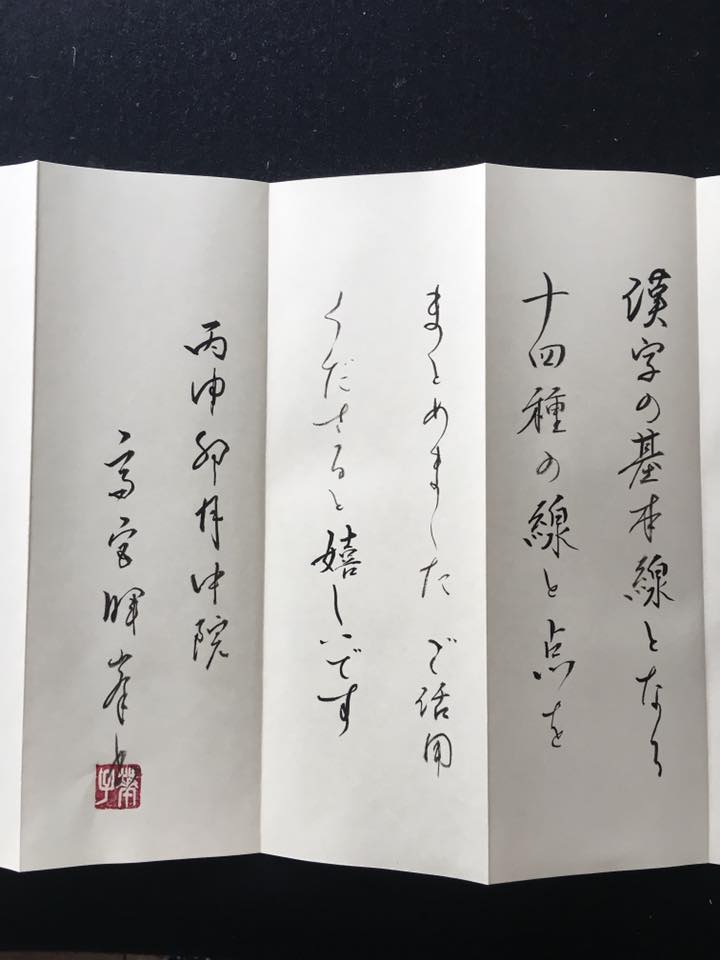 漢字の基本線となる
十四種の線と点を
まとめました ご活用
くださると嬉しいです
丙申卯月中院
高宮暉峯書